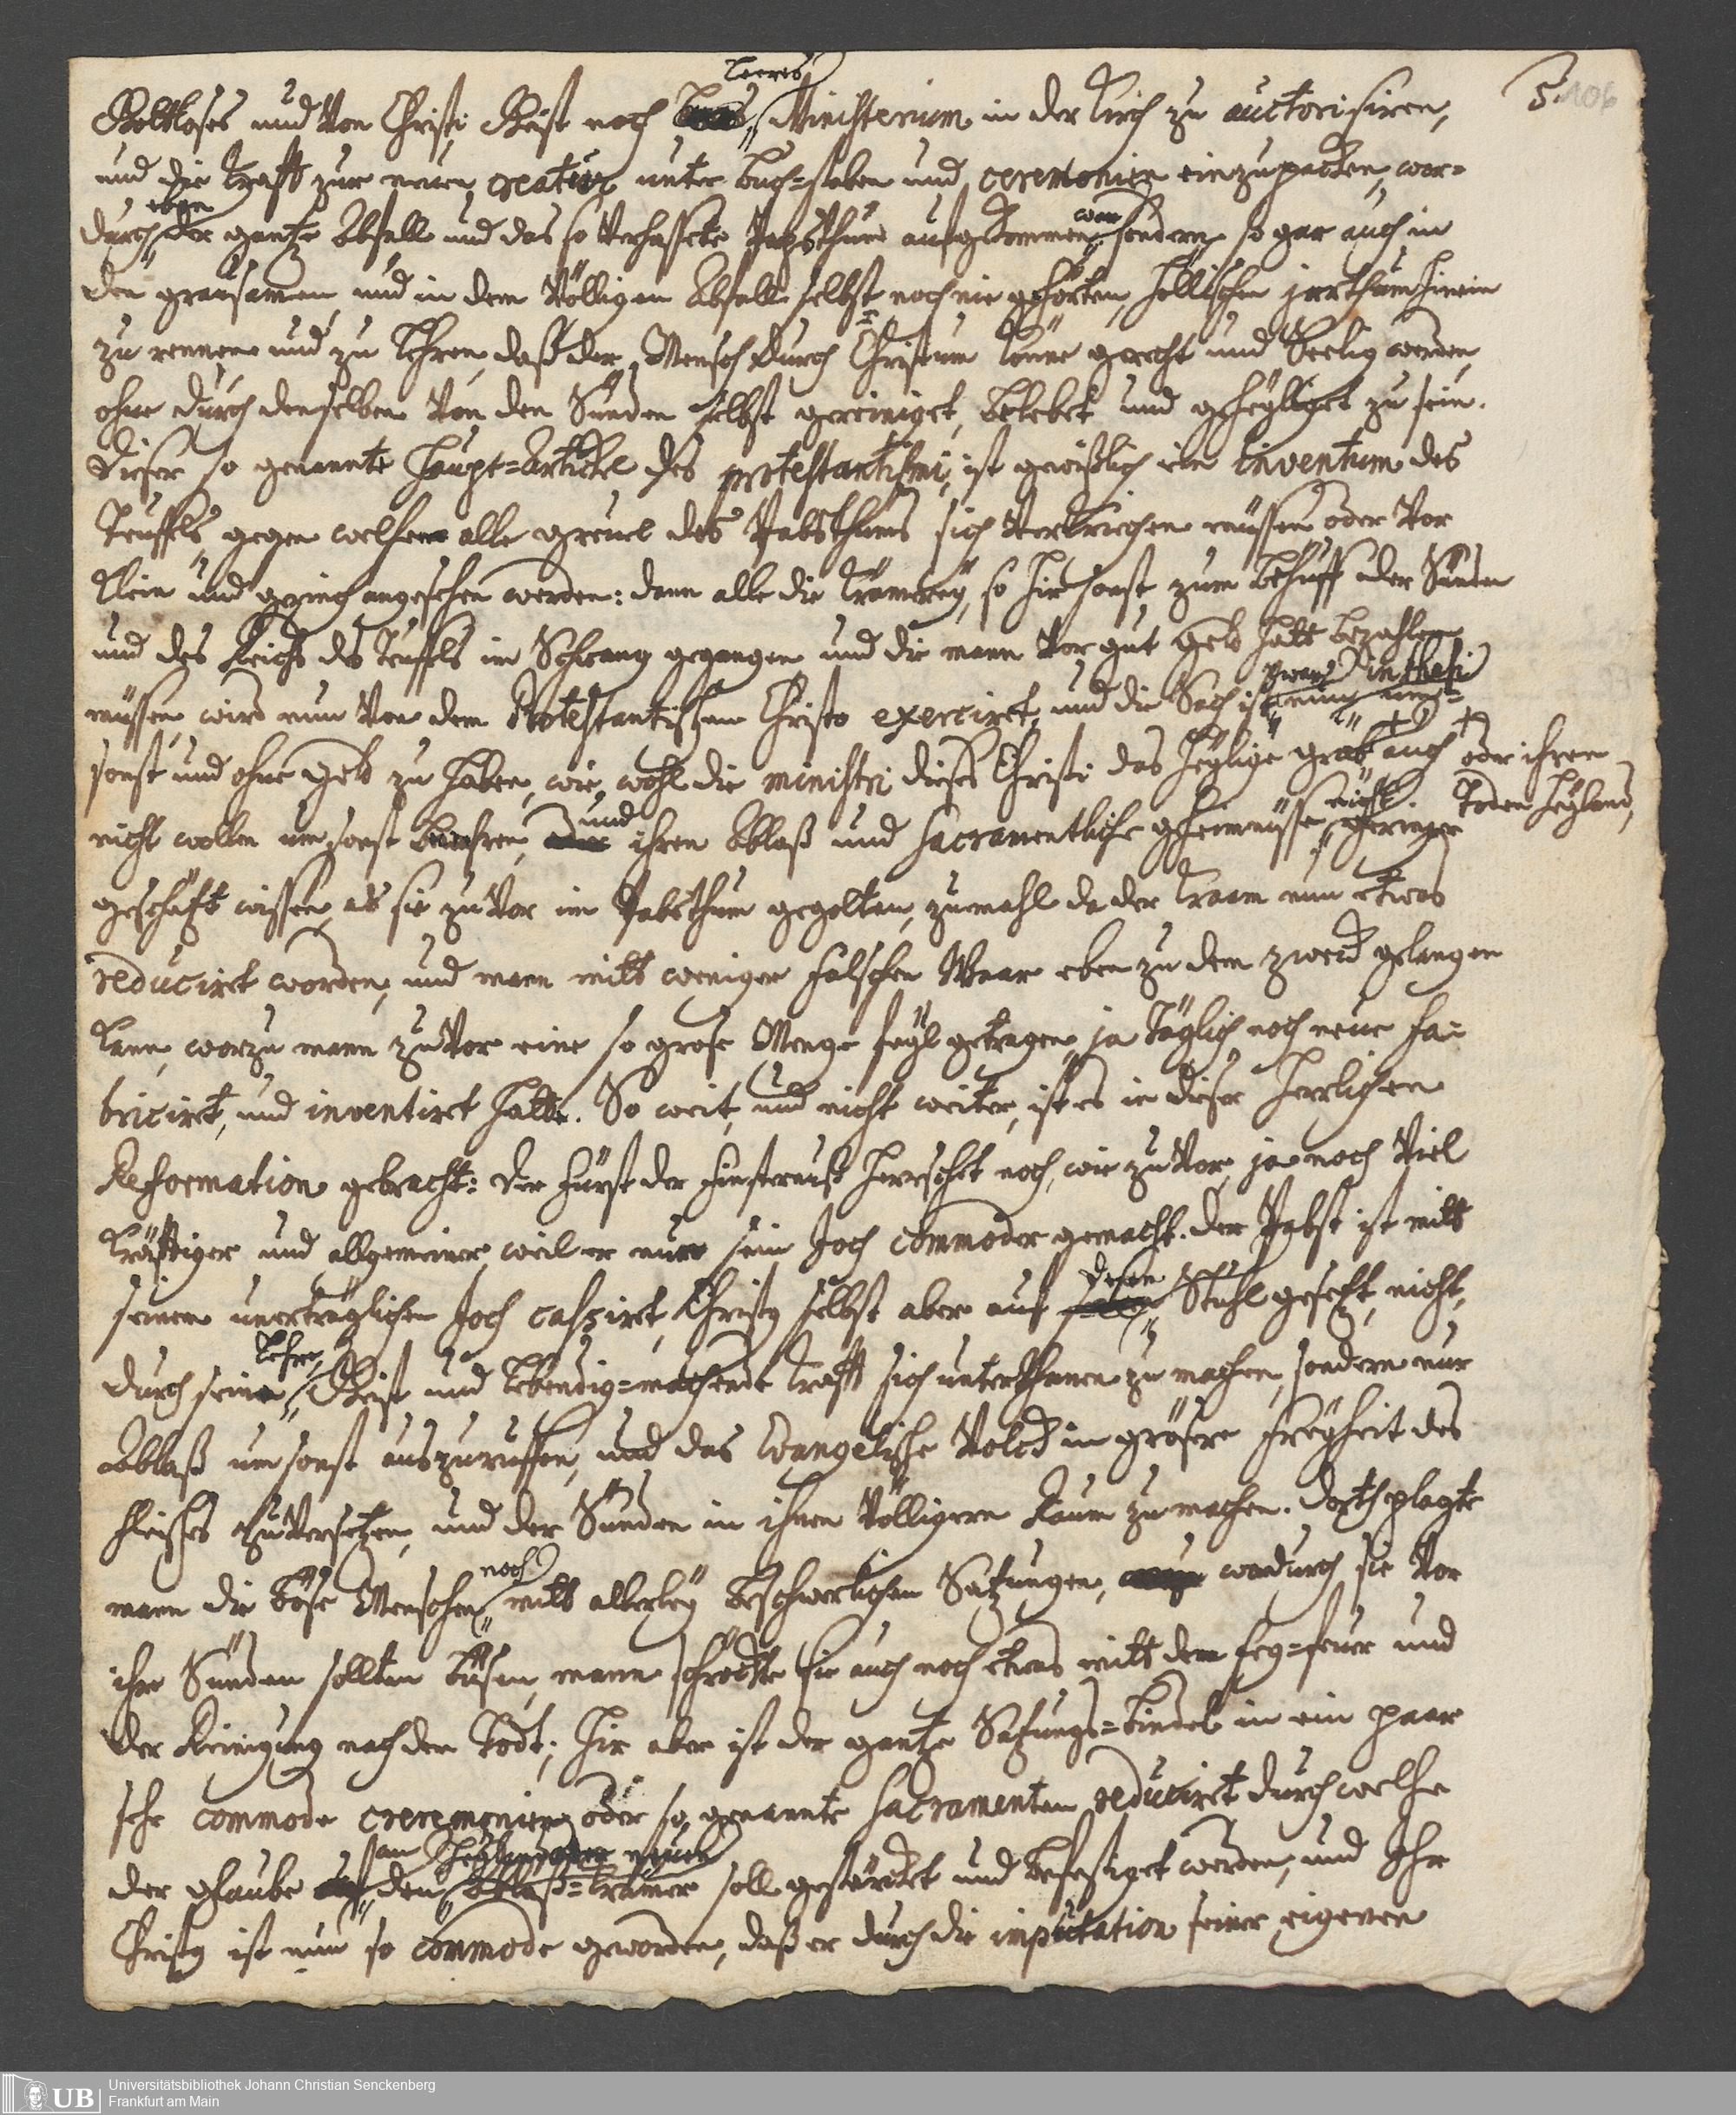 leeres
Gottloses und Von Christi Geist noch Ministerium in der Kirch zu auctorisiren,
5. 106
und die Krafft zur neuen creatur unter Buch=staben und ceremonien einzupacken, wor=
eben
war
durch der gantze Abfall und das so Verhassete Papsthum aufgekommen, sondern so gar auch in
den grausamen und in dem Völligen Abfall selbst noch nie gehörten, höllischen jrrthum hinein
zu rennen und zu Lehren, daß der Mensch durch Christum könne gerecht und Seelig werden,
ohne durch denselben Von den Sünden selbst gereiniget, belebet und geheyliget zu sein.
Dieser so genannte Haupt=Artickel des protestantismi, ist gewißlich ein inventum des
Teuffels, gegen welchen alle greuel des Pabsthums sich Verkriechen müssen oder Vor
klein und gering angesehen werden: dann alle die Krämerey, so hier sonst zum behuff der Sünden
und des Reichs des Teuffels im Schwang gegangen und die mann Vor gut geld hatt bezahlen
zwar in thesi
müssen, wird nun Von dem Protestantischen Christo exerciret, und die Sach ist nun umb=
sonst und ohne geld zu haben, wie wohl die ministri dieses Christi das heylige grab auch oder ihren
und
nicht. Toden Heyland,
nicht wollen umsonst ihren Ablaß und sacramentliche geheimnüsse geringer
geschäzt wissen, als sie zuVor im Pabsthum gegolten, zumahl da der Kraam nun etwas
reduciret worden, und mann mitt weniger falschen Waar eben zu dem zweck gelangen
kann, worzu mann zuVor eine so grose Menge feyl getragen, ja Täglich noch neue fa=
briciret, und inventiret hatte. So weit, und nicht weiter, ist es in dieser herrlichen
Reformation gebracht: der Fürst der Finsternuß herrschet noch, wie zuVor, ja noch Viel
kräfftiger und allgemeiner, weil er nur sein Joch commoder gemacht. der Pabst ist mitt
dessen
seinem unerträglichen Joch cassiret, Christus selbst aber auf Stuhl gesetzt, nicht,
Lehre,
durch seine Geist und Lebendig=machende Krafft sich unterthanen zu machen, sondern nur
Ablaß umsonst auszuruffen, und das Evangelische Volck in grösere Freyheit des
Fleisches zu Versetzen, und der Sünden in ihnen Völligern Raum zu machen. Dorth plagte
noch
mann die böse Menschen mitt allerley beschwerlichen Satzungen, wodurch sie Vor
ihre Sünden sollten büsen, mann schröckte sie auch noch etwas mitt dem feg=feuer und
der Reinigung nach dem Todt; hier aber ist der gantze Satzungs=bündel in ein paar
sehr commode ceremonien oder so genannte sacramenten reduciret durch welche
an neuen
der glaube den Ablaß=Krämer soll gestärcket und befestiget werden, und Ihr
Christus ist nun so commode geworden, daß er durch die imputation seiner eigenen
UB
Universitätsbibliothek Johann Christian Senckenberg
Frankfurt am Main